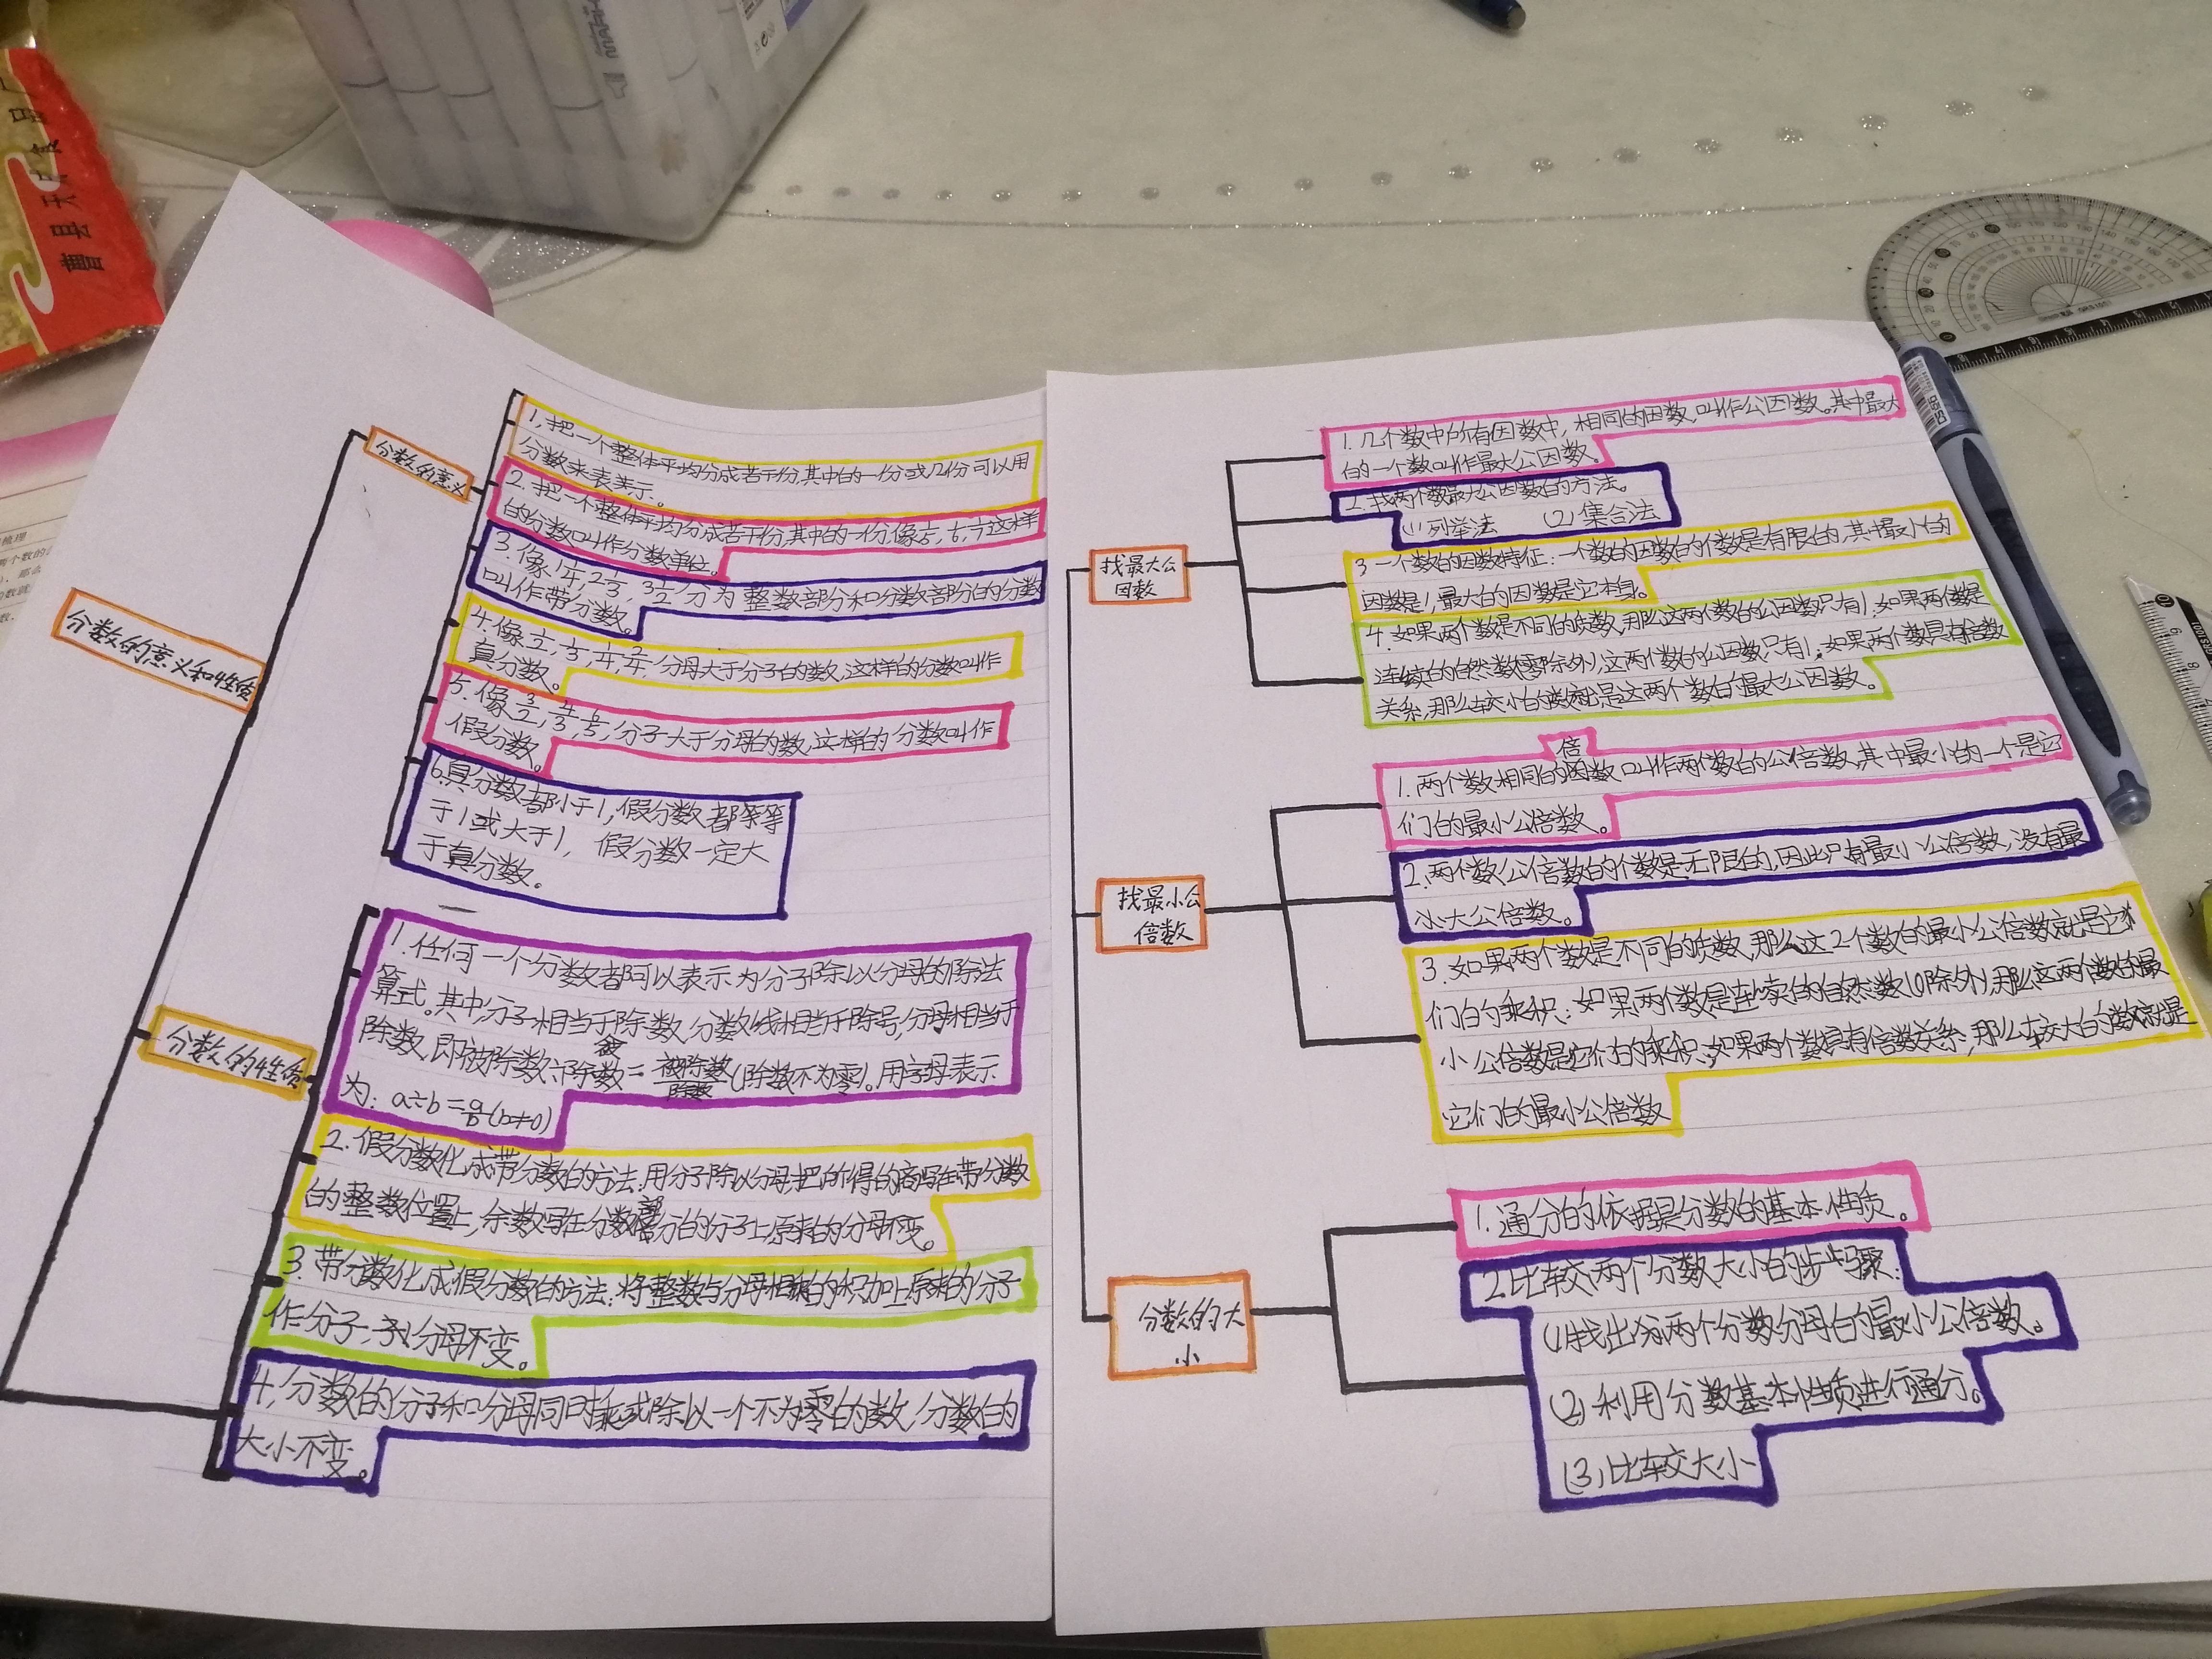 曹县天
食品厂
梳理
分数的意义和性质
分数的意义
1,把一个整体平均分成若干份,其中的一份或几份可以用
分数来表示.
2.把一个整体平均分成苦干份,其中的一份.像
的分数叫作分数单位。
3.像1¼,2⅔,3½,分为整数部分和分数部份的分数
叫作带分数。
4.像½,⅓,¼,2/4,分母大于分子的数,这样的分数叫作
真分数。
5.像3/2,4/3,6/5,分子大于分母的数,这样的分数叫作
假分数。
6.真分数都小于1,假分数都等
于1或大于1,假分数一定大
于真分数。
分数的性质
1.任何一个分数都可以表示为分子除以分母的除法
算式。其中,分子相当于除数,分数线相当于除号,分母相当于
被
除数,即被除数÷除数=被除数/除数(除数不为零)。用字母表示
为:a÷b=a/b(b≠0)
2.假分数化成带分数的方法:用分子除以分母把所得的商写在带分数
的整数位置上,余数写在分数部分的分子上原来的分母不变。
3.带分数化成假分数的方法:将整数与分母相乘的积加上原来的分子
作分子,分母不变。
4,分数的分子和分母同时乘或除以一个不为零的数,分数的
大小不变。
找最大公
因数
1.几个数中所有因数中,相同的因数,叫作公因数。其中最大
的一个数叫作最大公因数。
2.找两个数最大公因数的方法。
(1)列举法 (2)集合法
3一个数的因数特征:一个数的因数的个数是有限的,其中最小的
因数是1,最大的因数是它本身。
4.如果两个数是不同的质数,那么这两个数的公因数只有1.如果两个数是
连续的自然数(零除外),这两个数的公因数只有1;如果两个数具有倍数
关系,那么较小的数就是这两个数的最大公因数。
找最小公
倍数
倍
1.两个数相同的因数叫作两个数的公倍数,其中最小的一个是它
们的最小公倍数。
2.两个数公倍数的个数是无限的,因此只有最小公倍数,没有最
大公倍数。
3.如果两个数是不同的质数,那么这2个数的最小公倍数就是它
们的乘积;如果两个数是连续的自然数(0除外)那么这两个数的最
小公倍数是它们的乘积;如果两个数具有倍数关系,那么较大的数就是
它们的最小公倍数
分数的大
小
1.通分的依据是分数的基本性质。
2.比较两个分数大小的步骤:
(1)找出两个分数分母的最小公倍数。
(2)利用分数基本性质进行通分。
(3)比较大小